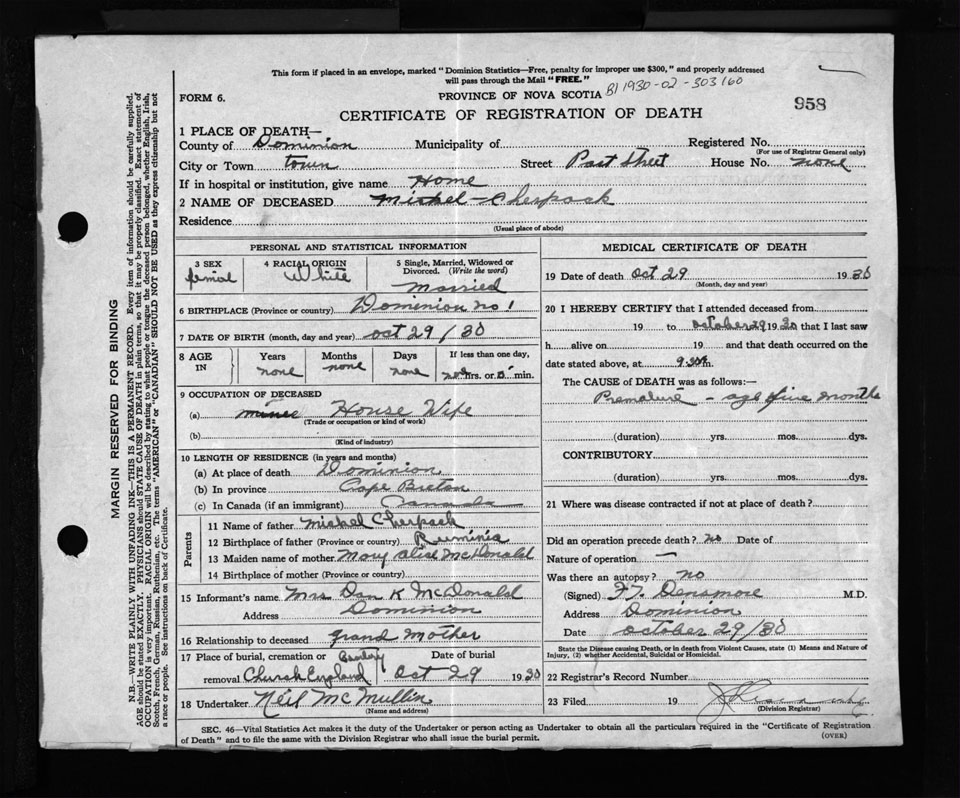 This form if placed in an envelope, marked "Dominion Statistics—Free, penalty for improper use $300," and properly addressed
will pass through the Mail "FREE."
FORM 6.
PROVINCE OF NOVA SCOTIA
B1 1930-02-303160
958
CERTIFICATE OF REGISTRATION OF DEATH
1 PLACE OF DEATH—
County of Dominion Municipality of Registered No.
(For use of Registrar General only)
City or Town town Street Post Street House No. none
If in hospital or institution, give name Home
2 NAME OF DECEASED Michel Cherpack
Residence
(Usual place of abode)
PERSONAL AND STATISTICAL INFORMATION
3 SEX
femal
4 RACIAL ORIGIN
White
5 Single, Married, Widowed or
Divorced. (Write the word)
Married
6 BIRTHPLACE (Province or country) Dominion no 1
7 DATE OF BIRTH (month, day and year) oct 29 / 30
8 AGE
IN
Years
none
Months
none
Days
none
If less than one day,
hrs. or 5 min.
9 OCCUPATION OF DECEASED
(a) miner House Wife
(Trade or occupation or kind of work)
(b)
(Kind of industry)
10 LENGTH OF RESIDENCE (in years and months)
(a) At place of death Dominion
(b) In province Cape Breton
(c) In Canada (if an immigrant) Canada
Parents
11 Name of father Michel Cherpack
12 Birthplace of father (Province or country) Ruminia
13 Maiden name of mother Mary Alice McDonald
14 Birthplace of mother (Province or country)
15 Informant's name Mrs Dan K McDonald
Address Dominion
16 Relationship to deceased grand mother
17 Place of burial, cremation or
removal Church England
Date of burial
Oct 29 1930
18 Undertaker Neil McMullin
(Name and address)
MEDICAL CERTIFICATE OF DEATH
19 Date of death Oct 29 1930
(Month, day and year)
20 I HEREBY CERTIFY that I attended deceased from
19 to october 29 1930 that I last saw
h alive on 19 and that death occurred on the
date stated above, at 9.30 m.
The CAUSE of DEATH was as follows:
Premature - age five months
(duration) yrs. mos. dys.
CONTRIBUTORY
(duration) yrs. mos. dys.
21 Where was disease contracted if not at place of death?
Did an operation precede death? no Date of
Nature of operation —
Was there an autopsy? no
(Signed) F.T. Densmore M.D.
Address Dominion
Date october 29/30
State the Disease causing Death, or in death from Violent Causes, state (1) Means and Nature of
Injury, (2) whether Accidental, Suicidal or Homicidal.
22 Registrar's Record Number
23 Filed 19
(Division Registrar)
SEC. 46—Vital Statistics Act makes it the duty of the Undertaker or person acting as Undertaker to obtain all the particulars required in the "Certificate of Registration
of Death" and to file the same with the Division Registrar who shall issue the burial permit.
(OVER)
MARGIN RESERVED FOR BINDING
N.B.—WRITE PLAINLY WITH UNFADING INK—THIS IS A PERMANENT RECORD. Every item of information should be carefully supplied.
AGE should be stated EXACTLY. PHYSICIANS should STATE CAUSE OF DEATH in plain terms, so that it may be properly classified. Exact statement of
OCCUPATION is very important. RACIAL ORIGIN will be described by stating to what people or tongue the deceased person belonged, whether English, Irish,
Scotch, French, German, Russian, Ruthenian, etc. The terms "AMERICAN" or "CANADIAN" SHOULD NOT BE USED as they express citizenship but not
a race or people. See instructions on back of Certificate.